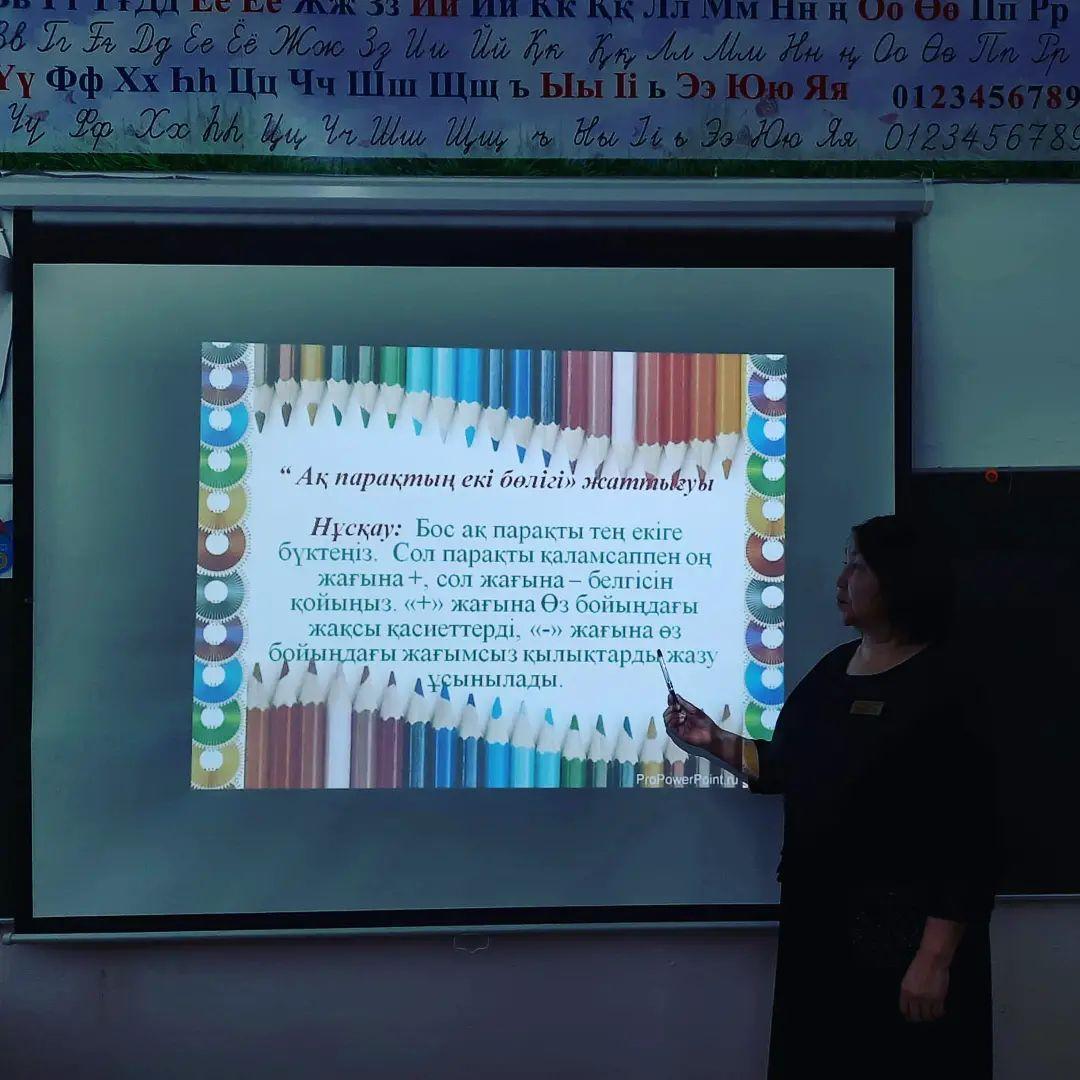 Ее Ёё Жж Зз Ии Йй Кк Ққ Лл Мм Нн ң Оо Өө Пп Рр
Вв Гг Ғғ Дд Ее Ёё Жж Зз Ии Йй Кк Ққ Лл Мм Нн ң Оо Өө Пп Рр
Үү Фф Хх Һһ Цц Чч Шш Щщ ъ Ыы Іі ь Ээ Юю Яя 0123456789
Үү Фф Хх Һһ Цц Чч Шш Щщ ъ Ыы Іі ь Ээ Юю Яя 0123456789
“ Ақ парақтың екі бөлігі» жаттығуы
Нұсқау: Бос ақ парақты тең екіге
бүктеңіз. Сол парақты қаламсаппен оң
жағына +, сол жағына – белгісін
қойыңыз. «+» жағына Өз бойыңдағы
жақсы қасиеттерді, «-» жағына өз
бойыңдағы жағымсыз қылықтарды жазу
ұсынылады.
ProPowerPoint.ru